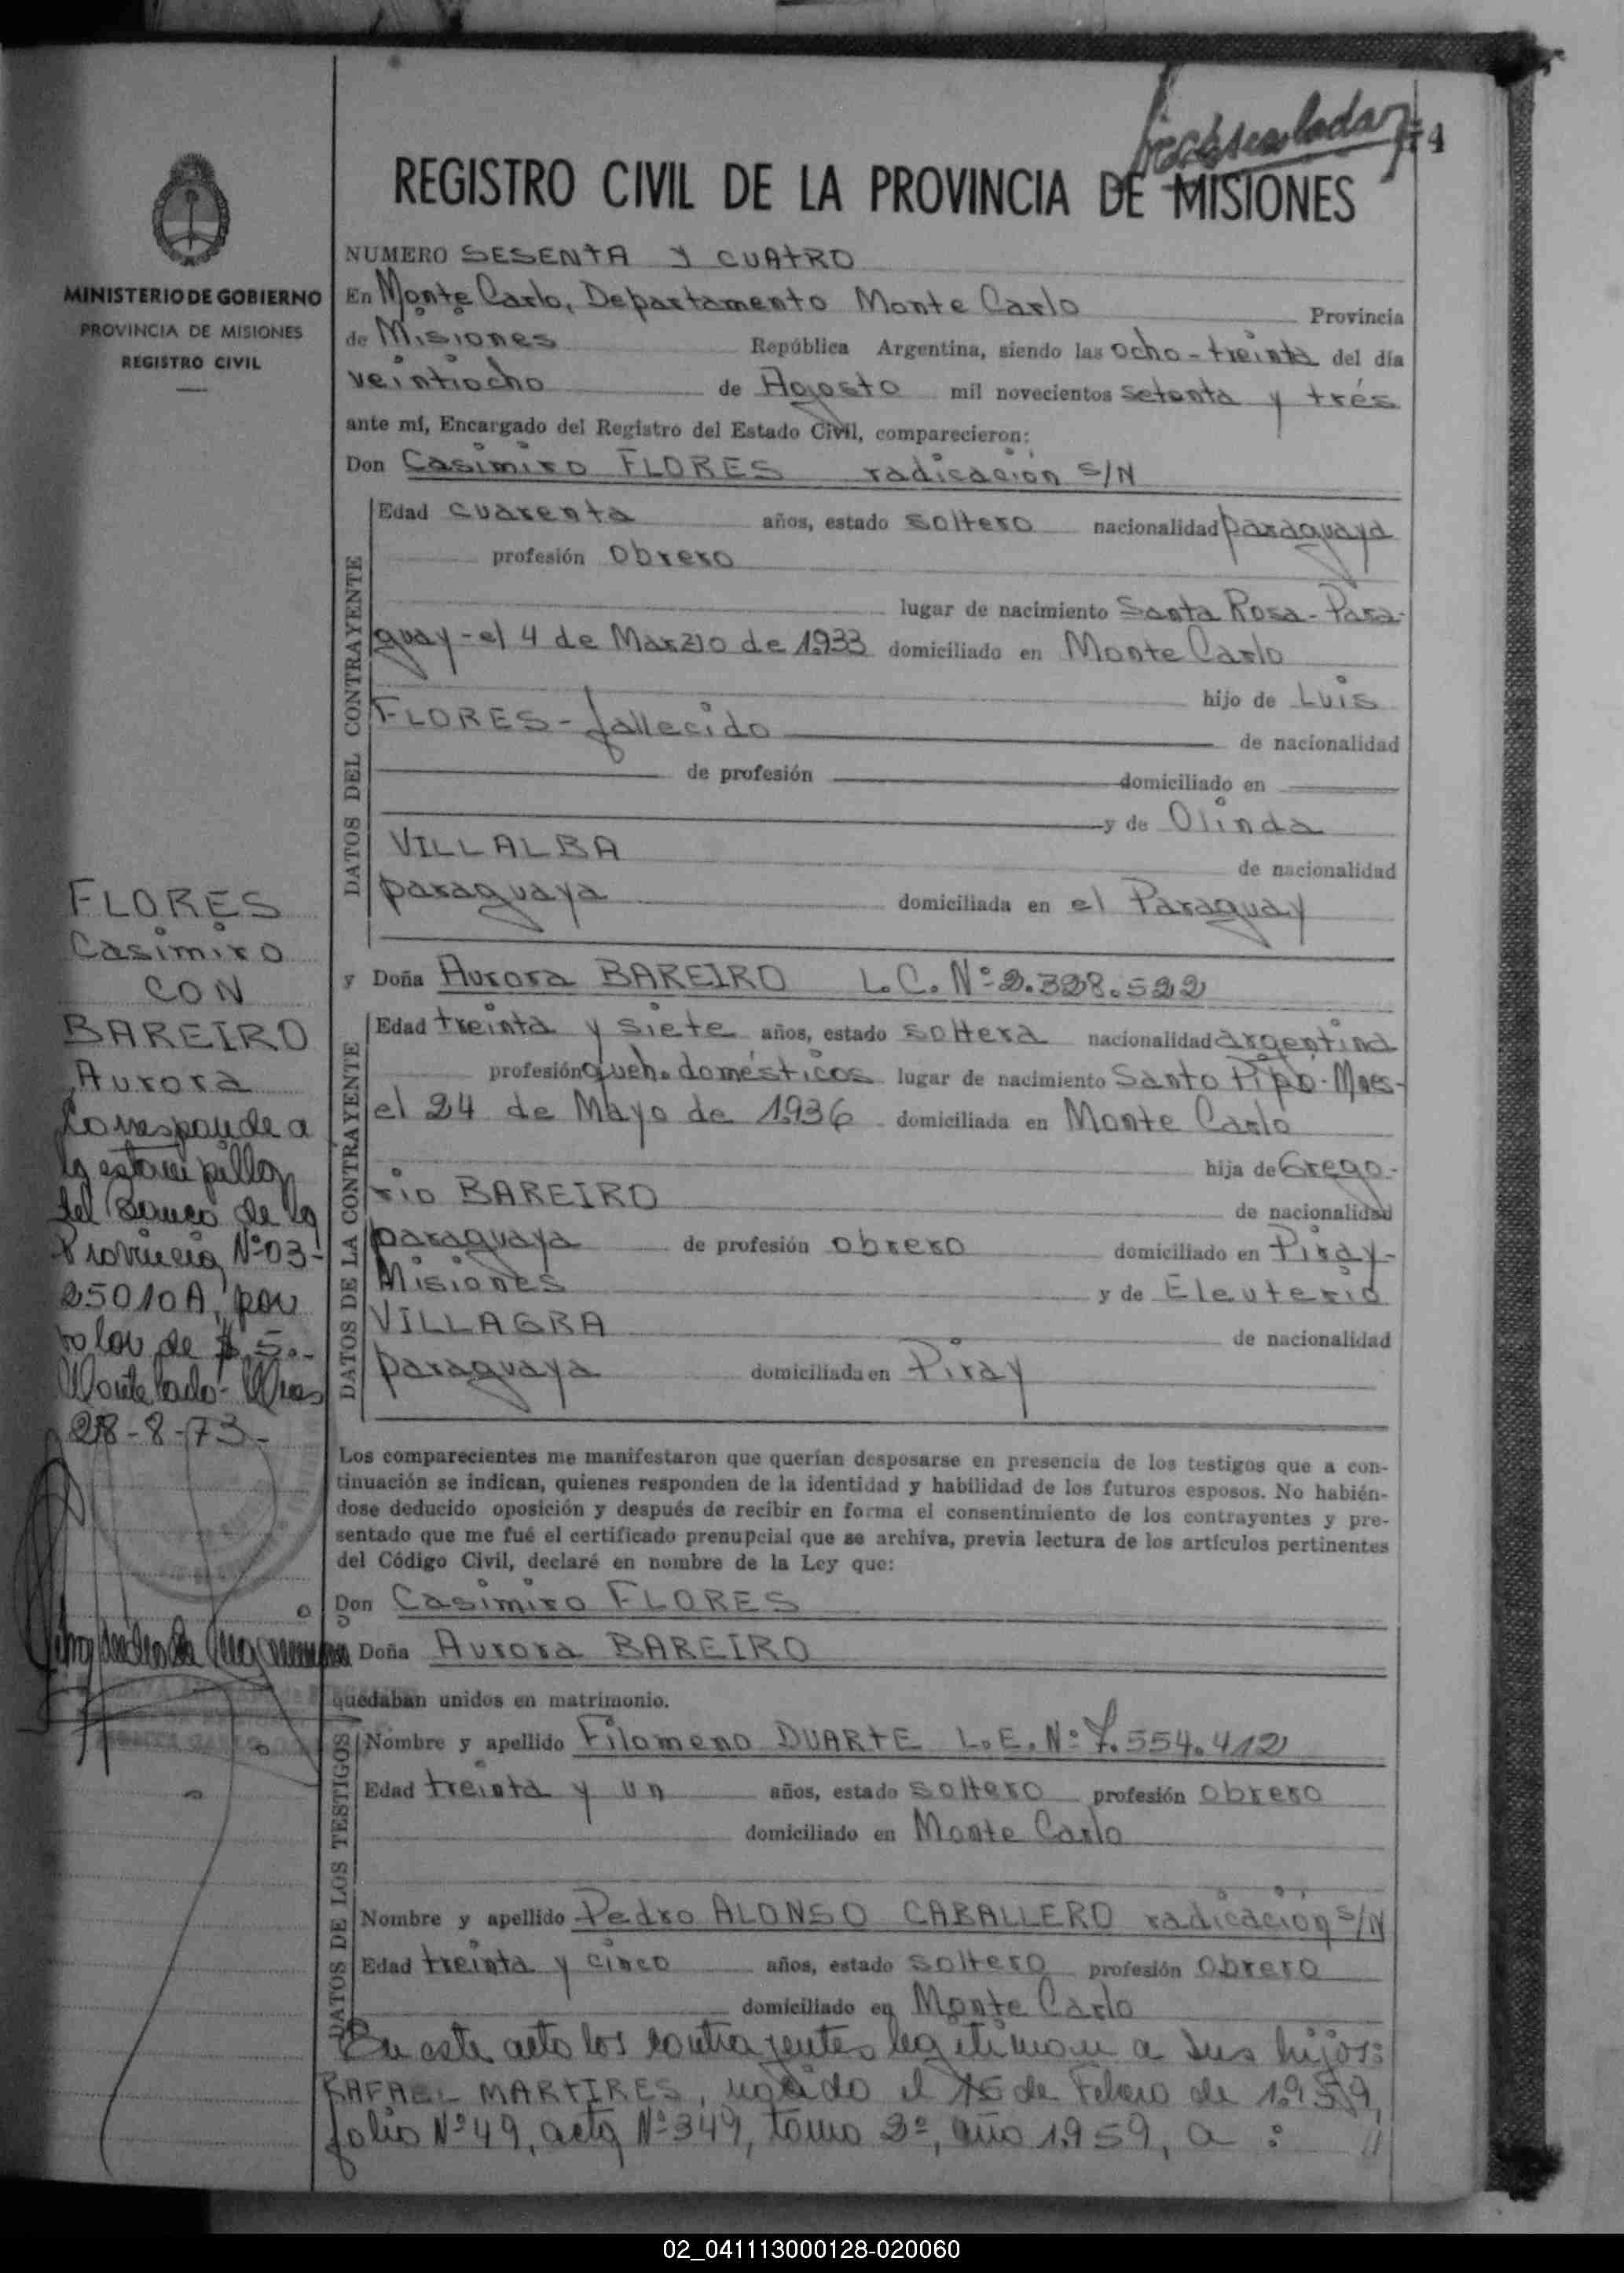 74
REGISTRO CIVIL DE LA PROVINCIA DE MISIONES
MINISTERIO DE GOBIERNO
PROVINCIA DE MISIONES
REGISTRO CIVIL
NUMERO SESENTA Y CUATRO
En Monte Carlo, Departamento Monte Carlo Provincia
de Misiones República Argentina, siendo las ocho-treinta del día
veintiocho de Agosto mil novecientos setenta y trés
ante mí, Encargado del Registro del Estado Civil, comparecieron:
Don Casimiro FLORES radicación S/N
DATOS DEL CONTRAYENTE
Edad cuarenta años, estado soltero nacionalidad paraguaya
profesión obrero
lugar de nacimiento Santa Rosa-Para-
guay-el 4 de Marzo de 1.933 domiciliado en Monte Carlo
hijo de Luis
FLORES-fallecido de nacionalidad
de profesión domiciliado en
y de Olinda
VILLALBA de nacionalidad
paraguaya domiciliada en el Paraguay
y Doña Aurora BAREIRO L.C. Nº 2.328.522
DATOS DE LA CONTRAYENTE
Edad treinta y siete años, estado soltera nacionalidad argentina
profesión queh. domésticos lugar de nacimiento Santo Pipó-Mnes-
el 24 de Mayo de 1.936 domiciliada en Monte Carlo
hija de Grego-
rio BAREIRO de nacionalidad
paraguaya de profesión obrero domiciliado en Piray-
Misiones y de Eleuteria
VILLAGRA de nacionalidad
paraguaya domiciliada en Piray
FLORES
Casimiro
CON
BAREIRO
Aurora
Corresponde a
la estampilla
del Banco de la
Provincia, Nº 03-
25010A, por
valor de $ 5.-
Monte Carlo- Mnes
28-8-73-
Los comparecientes me manifestaron que querían desposarse en presencia de los testigos que a con-
tinuación se indican, quienes responden de la identidad y habilidad de los futuros esposos. No habién-
dose deducido oposición y después de recibir en forma el consentimiento de los contrayentes y pre-
sentado que me fué el certificado prenupcial que se archiva, previa lectura de los artículos pertinentes
del Código Civil, declaré en nombre de la Ley que:
Don Casimiro FLORES
Doña Aurora BAREIRO
quedaban unidos en matrimonio.
DATOS DE LOS TESTIGOS
Nombre y apellido Filomeno DUARTE L.E. Nº 7.554.412
Edad treinta y un años, estado soltero profesión obrero
domiciliado en Monte Carlo
Nombre y apellido Pedro ALONSO CABALLERO radicación S/N
Edad treinta y cinco años, estado soltero profesión obrero
domiciliado en Monte Carlo
En este acto los contrayentes legitiman a sus hijos:
RAFAEL MARTIRES, nacido el de Febrero de 1.959,
folio Nº 49, acta Nº 349, tomo 2º, año 1.959, a : //
02_041113000128-020060